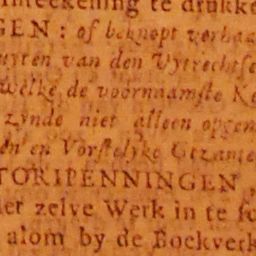 Inteekening te drukke
GEN: of beknopt verhaa
uyten van den Vytrechtse
welke de voornaamste Ke
zynde niet alleen opgen
en en Vorstelyke Gezante
TORIPENNINGEN,
et zelve Werk in te
alom by de Boekverk